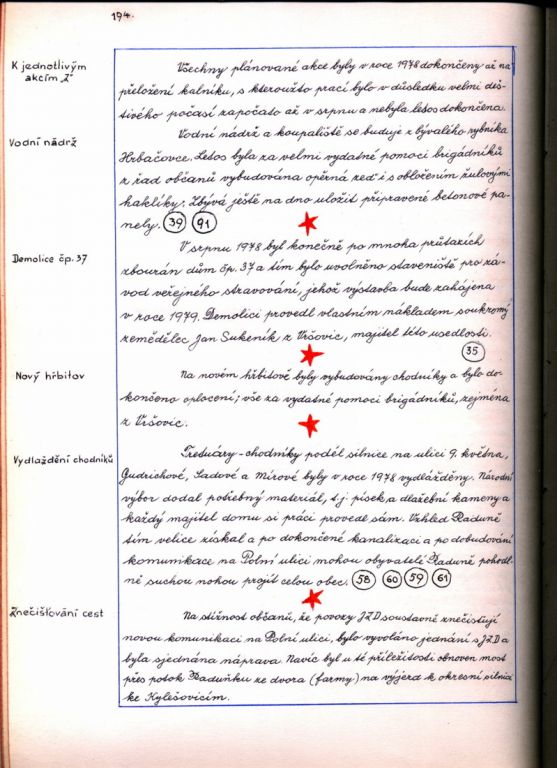 194.
K jednotlivým
akcím „Z"
Všechny plánované akce byly v roce 1978 dokončeny až na
přeložení kalníku, s kteroužto prací bylo v důsledku velmi deš-
tivého počasí započato až v srpnu a nebyla letos dokončena.
Vodní nádrž
Vodní nádrž a koupaliště se buduje z bývalého rybníka
Hrbačovce. Letos byla za velmi vydatné pomoci brigádníků
z řad občanů vybudována opěrná zeď i s obložením žulovými
haklíky. Zbývá ještě na dno uložit připravené betonové pa-
nely. 39 91
Demolice čp. 37
V srpnu 1978 byl konečně po mnoha průtazích
zbourán dům čp. 37 a tím bylo uvolněno staveniště pro zá-
vod veřejného stravování, jehož výstavba bude zahájena
v roce 1979. Demolici provedl vlastním nákladem soukromý
zemědělec Jan Sukeník z Vršovic, majitel této usedlosti.
35
Nový hřbitov
Na novém hřbitově byly vybudovány chodníky a bylo do-
končeno oplocení; vše za vydatné pomoci brigádníků, zejména
z Vršovic.
Vydláždění chodníků
Tretuáry - chodníky podél silnice na ulici 9. května,
Gudrichové, Sadové a Mírové byly v roce 1978 vydlážděny. Národní
výbor dodal potřebný materiál, t.j. písek, a dlažební kameny a
každý majitel domu si práci provedl sám. Vzhled Raduně
tím velice získal a po dokončené kanalizaci a po dobudování
komunikace na Polní ulici mohou obyvatelé Raduně pohodl-
ně suchou nohou projít celou obec. 58 60 59 61
Znečišťování cest
Na stížnost občanů, že povozy JZD soustavně znečisťují
novou komunikaci na Polní ulici, bylo vyvoláno jednání s JZD a
byla sjednána náprava. Navíc byl u té příležitosti obnoven most
přes potok Raduňku ze dvora (farmy) na výjezd k okresní silnici
ke Kylešovicím.